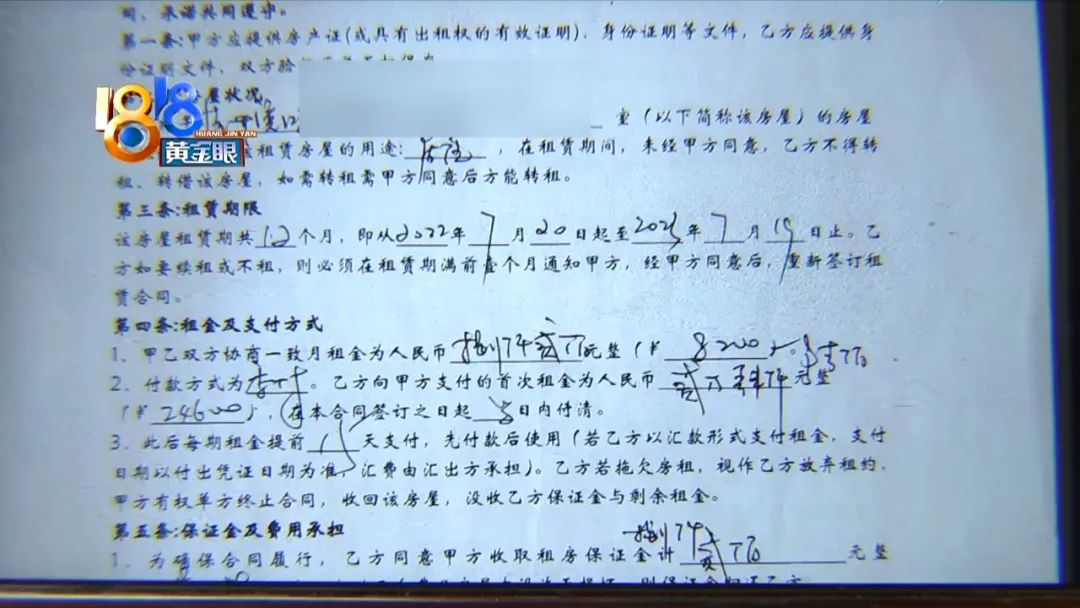 同、承诺共同遵守。
第一条:甲方应提供房产证(或具有出租权的有效证明)、身份证明等文件,乙方应提供身
份证明文件、双方验
屋状况
室(以下简称该房屋)的房屋
1818
HUANG JIN YAN
黄金眼
租赁房屋的用途:居住,在租赁期间,未经甲方同意,乙方不得转
租、转借该房屋,如需转租需甲方同意后方能转租。
第三条:租赁期限
该房屋租赁期共12个月,即从2022年7月20日起至2023年7月19日止。乙
方如要续租或不租,则必须在租赁期满前壹个月通知甲方,经甲方同意后,重新签订租
赁合同。
第四条:租金及支付方式
1、甲乙双方协商一致月租金为人民币 捌仟贰佰元整(¥ 8200)。
2、付款方式为季付。乙方向甲方支付的首次租金为人民币 贰万 元整
(¥ 24600),(在本合同签订之日起 日内付清。
3、此后每期租金提前15天支付,先付款后使用(若乙方以汇款形式支付租金,支付
日期以付出凭证日期为准,汇费由汇出方承担)。乙方若拖欠房租,视作乙方放弃租约,
甲方有权单方终止合同,收回该房屋,没收乙方保证金与剩余租金。
第五条:保证金及费用承担
1、为确保合同履行,乙方同意甲方收取租房保证金计 捌仟贰佰 元整